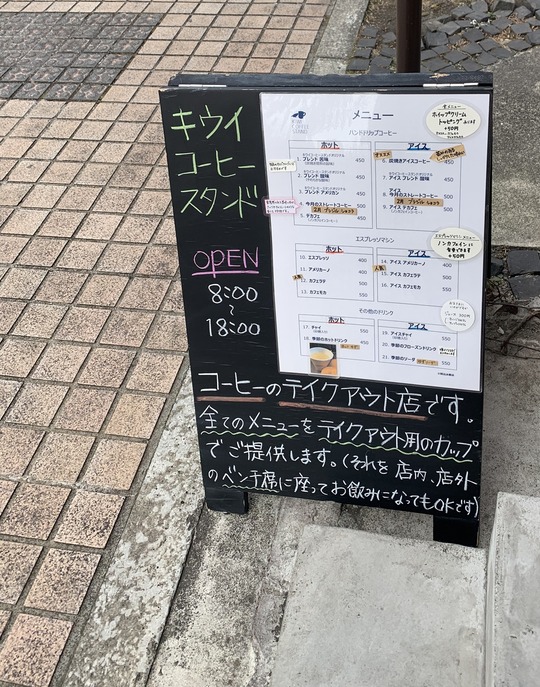 キウイ
コーヒー
スタンド
OPEN
8:00
~
18:00
メニュー
ハンドドリップコーヒー
ホット
1. ブレンド 苦味 450
2. ブレンド 酸味 450
3. ブレンド アメリカン 450
4. 今月のストレートコーヒー 500
2月 ブラジル ショコラ
5. デカフェ 450
アイス
6. 炭焼きアイスコーヒー 450
7. アイス ブレンド 酸味 450
8. 今月のストレートコーヒー 500
2月 ブラジル ショコラ
9. アイス デカフェ 450
全メニュー
ホイップクリーム
トッピング
+50円
エスプレッソマシン
ホット
10. エスプレッソ 400
11. アメリカーノ 400
人気
12. カフェラテ 550
13. カフェモカ 550
アイス
14. アイス アメリカーノ 400
人気
15. アイス カフェラテ 550
16. アイス カフェモカ 550
ノンカフェインに
変更できます
+50円
その他のドリンク
ホット
17. チャイ 550
18. 季節のホットドリンク
アイス
19. アイスチャイ 550
20. 季節のフローズンドリンク
21. 季節のソーダ 550
コーヒーのテイクアウト店です。
全てのメニューをテイクアウト用のカップ
でご提供します。(それを店内、店外
のベンチ席に座ってお飲みになってもOKです)